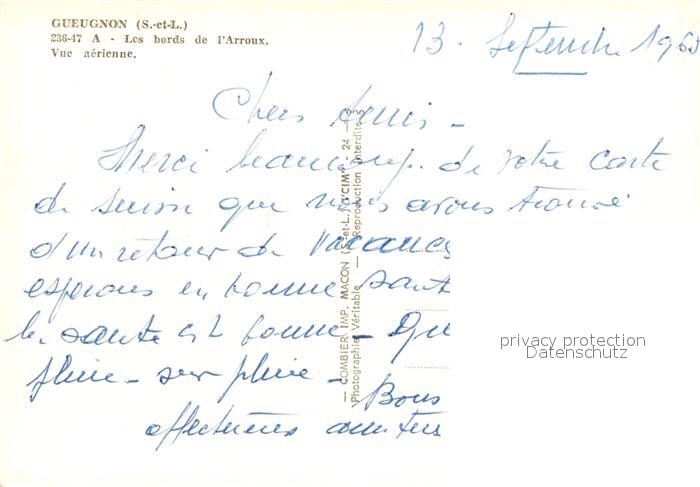 GUEUGNON (S.-et-L.)
236-47 A - Les bords de l'Arroux.
Vue aérienne.
13 Septembre 196
Chers Amis -
Merci beaucoup de votre carte
de suisse que nous avons trouvé
d'un retour de vacances
esperons en bonne santé
la sante est bonne -
pluie - sur pluie -
Bons
affectueuses amitiés
— COMBIER IMP. MACON (S-et-L.) "CIM" - 24 -
Photographie Véritable — Reproduction Interdite
privacy protection
Datenschutz